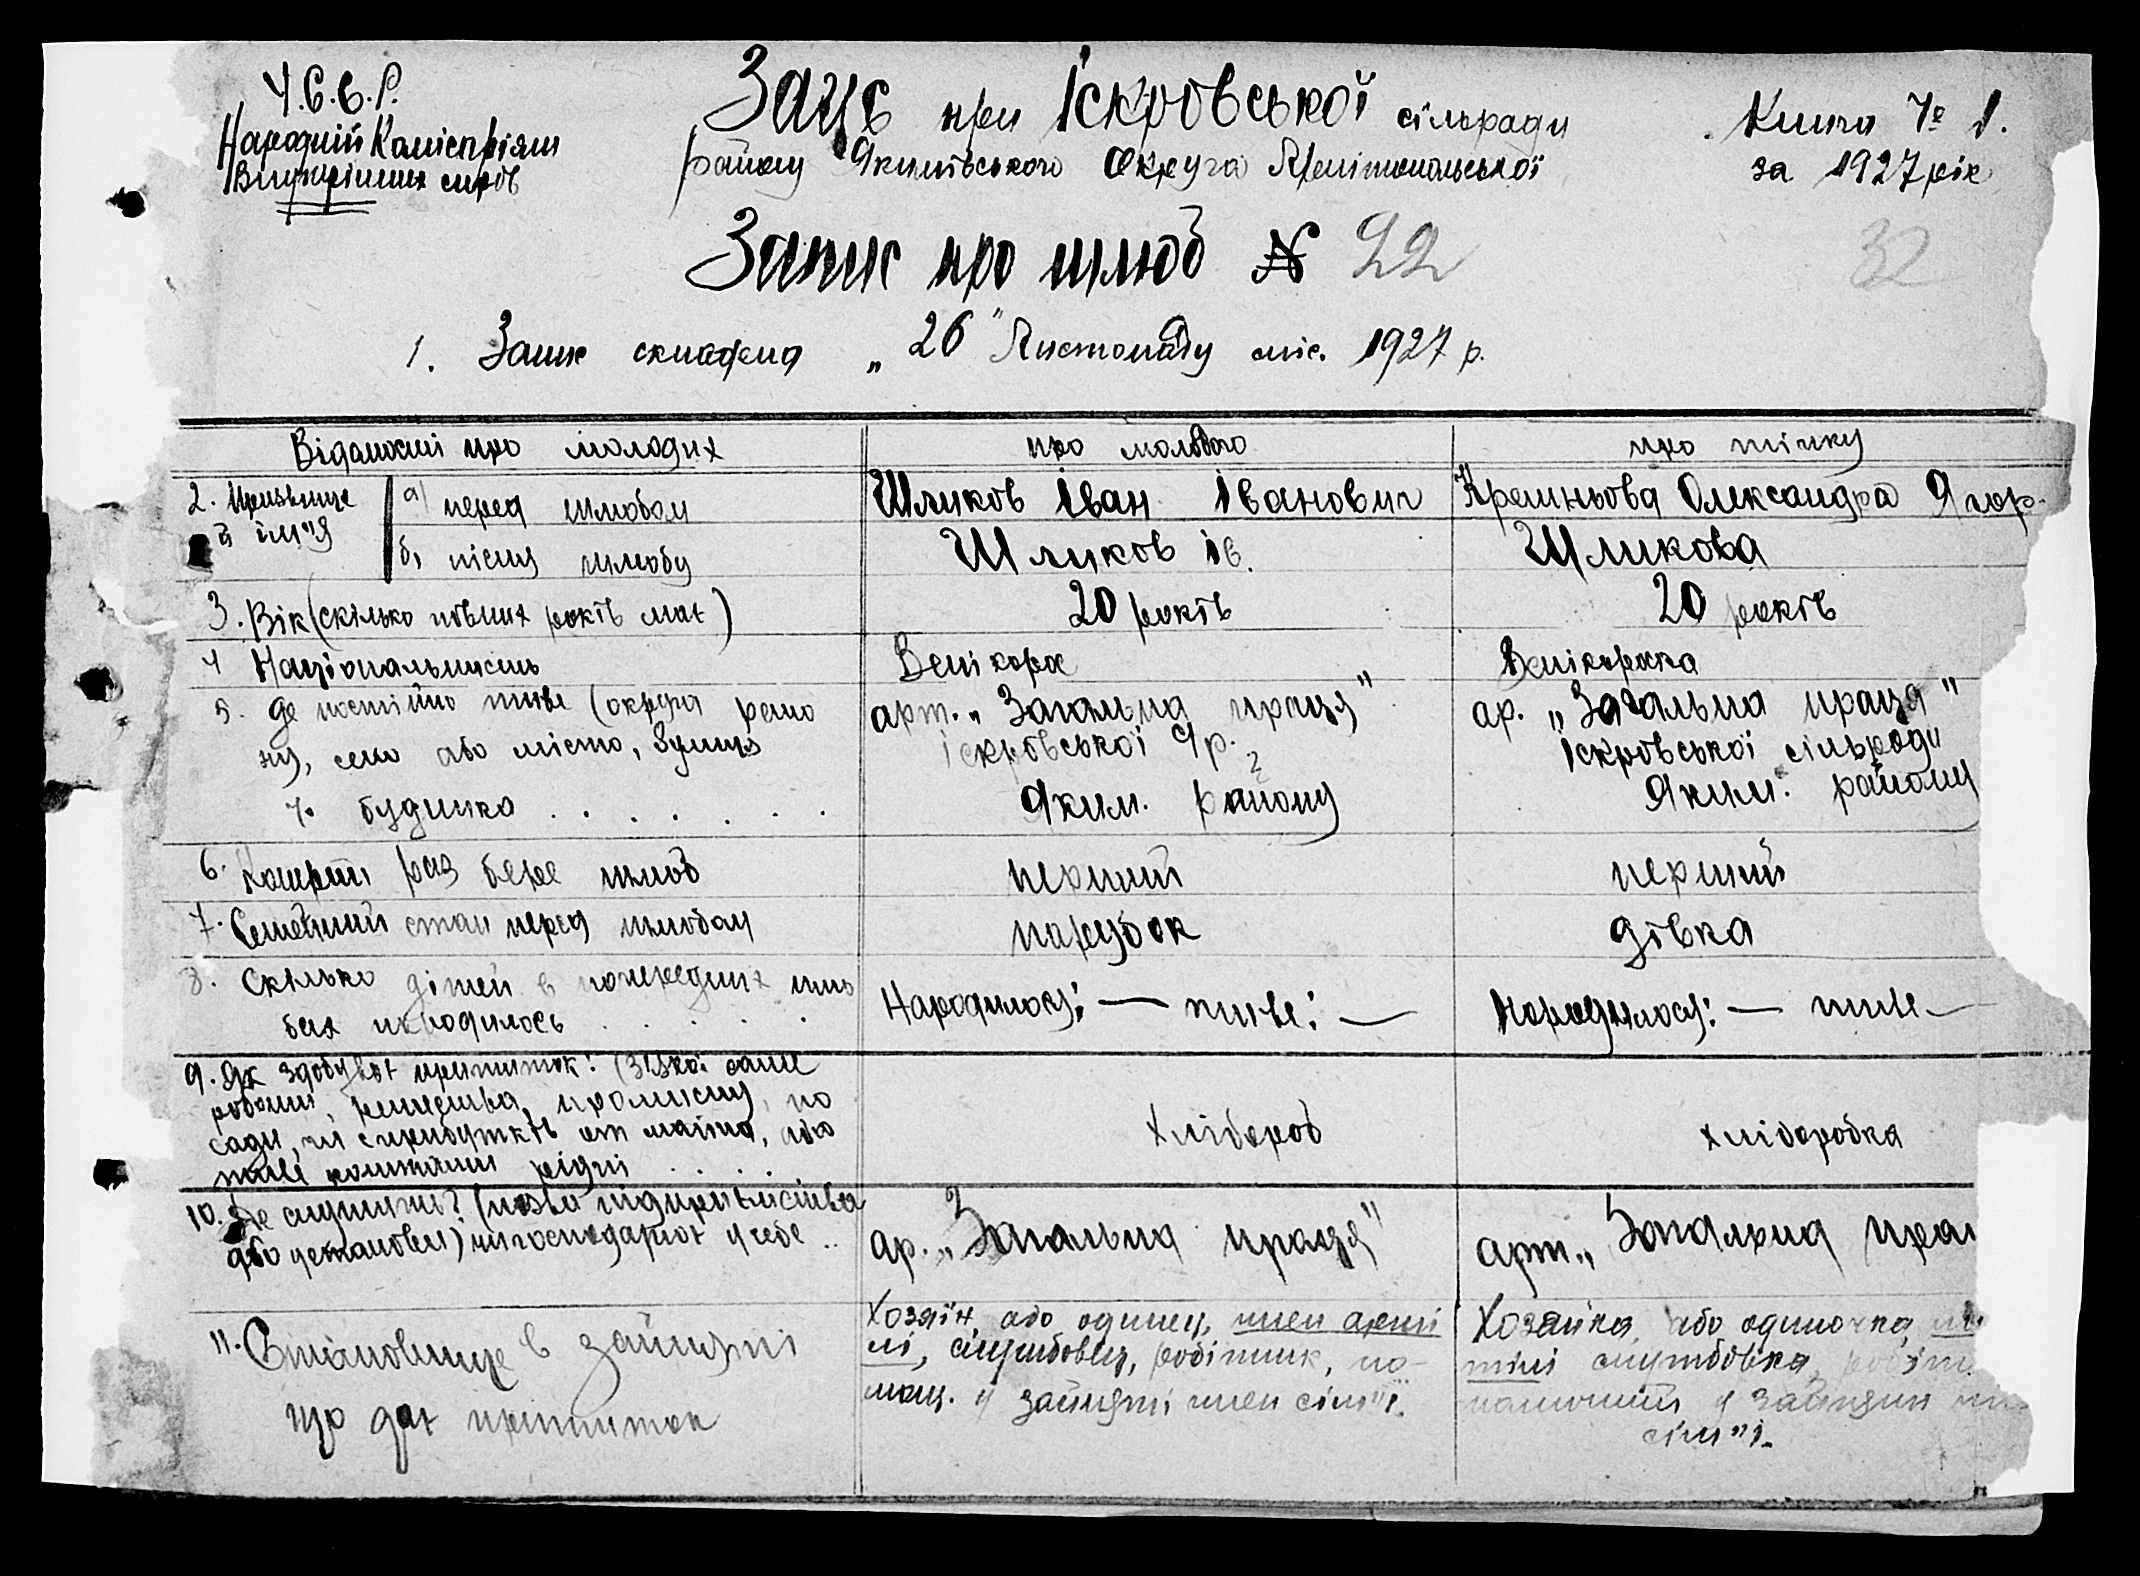 У.С.С.Р.
Народній Комісаріят
Внутрішніх справ
Загс при Іскровської сільради
району Якимівського Округа Мелітопольської
Книга № 1.
за 1927 рік
Запис про шлюб № 22
32
1. Запис складена „26" Листопаду міс. 1927 р.
Відомості про молодих
про молодого
про жінку
2. Призвище й ім"я
а) перед шлюбом
Шликов Іван Іванович
Кремньова Олександра Ягор.
б) після шлюбу
Шликов Ів.
Шликова
3. Вік (скілько повних років має)
20 років
20 років
4 Національність
Велікорос
Велікороска
5. Де постійно живе (округа, райо
ну), село або місто, вулиця
№ будинка . . . . . . .
арт. „Загальна праця"
Іскровської с/р.
Яким. району
ар. „Загальна праця"
Іскровської сільради
Яким. району
6. Котрий раз бере шлюб
перший
перший
7. Семейний стан перед шлюбом
парубок
дівка
8. Скілько дітей в попередніх шлю
бах народилось . . . . .
Народилося: — живе: —
Народилося: — живе —
9. Як здобуває прожиток: (з якої саме
роботи, ремества, промислу, по
сади, чи с прибутків от майна, або
живе коштами рідні . . . .
хлібороб
хліборобка
10. Де служить? (назва підприємства
або установи) чи господарює у себе ..
ар. „Загальна праця"
арт. „Загальна прац
11. Становище в занятті
що дає прожиток
Хозяїн або одинец, член арті
лі, службовец, робітник, по-
мащ. у занятті член сім"ї.
Хозяйка або одиночка,
тілі службовка, робіт
помошниц у занятии
сім"ї.